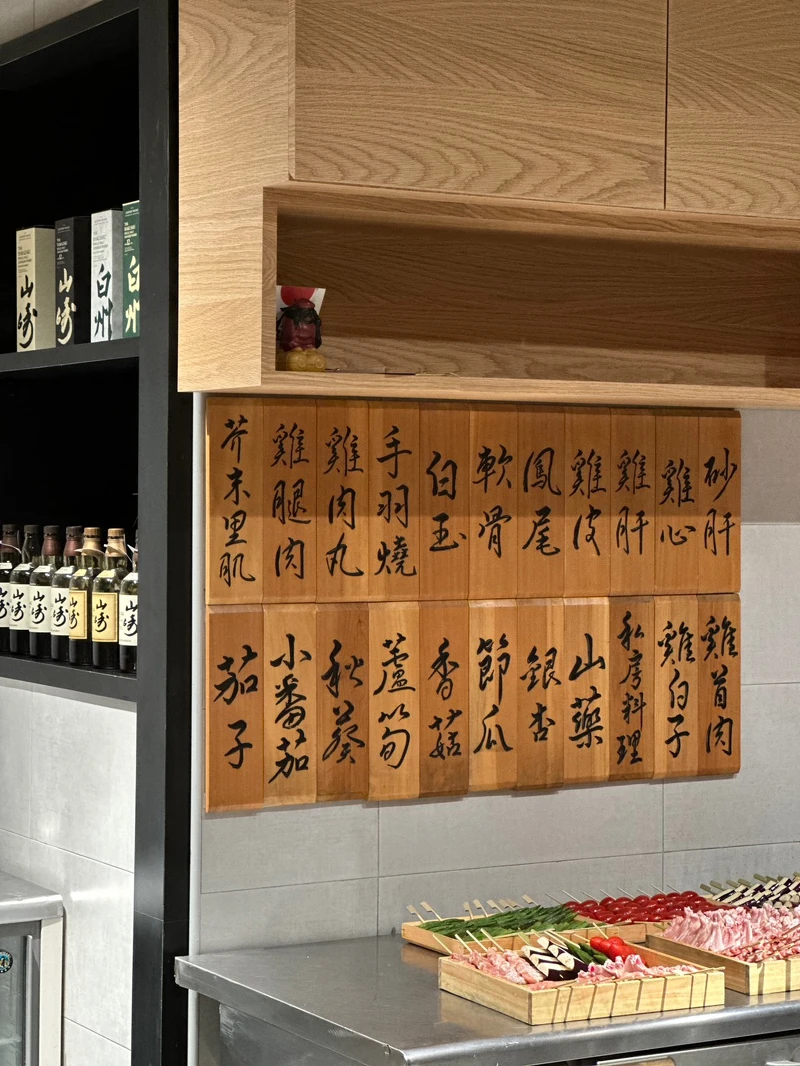 砂肝
雞心
雞肝
雞皮
鳳尾
軟骨
白玉
手羽燒
雞肉丸
雞腿肉
芥末里肌
雞首肉
雞白子
私房料理
山藥
銀杏
節瓜
香菇
蘆筍
秋葵
小番茄
茄子
山崎
山崎
白州
白州
山崎
山崎
山崎
山崎
山崎
山崎